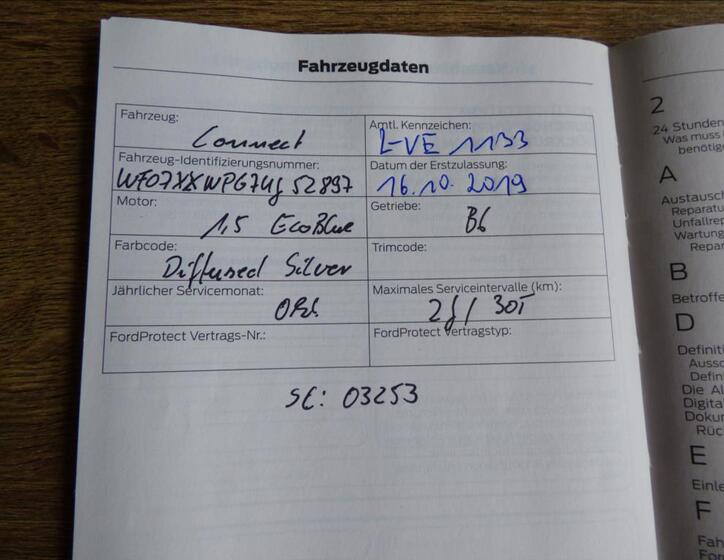 Fahrzeugdaten
Fahrzeug:
Connect
Amtl. Kennzeichen:
L-VE 1133
Fahrzeug-Identifizierungsnummer:
Datum der Erstzulassung:
16.10.2019
Motor:
1,5 EcoBlue
Getriebe:
B6
Farbcode:
Diffused Silver
Trimcode:
Jährlicher Servicemonat:
Okt.
Maximales Serviceintervalle (km):
2J / 30T
FordProtect Vertrags-Nr.:
FordProtect Vertragstyp:
SC: 03253
2
24 Stunden
Was muss
benötige
A
Austausch
Reparatu
Unfallrep
Wartung
Repar
B
Betroffe
D
Definiti
Aussc
Defin
Die Al
Digita
Dokur
Rüc
E
Einle
F
Fah